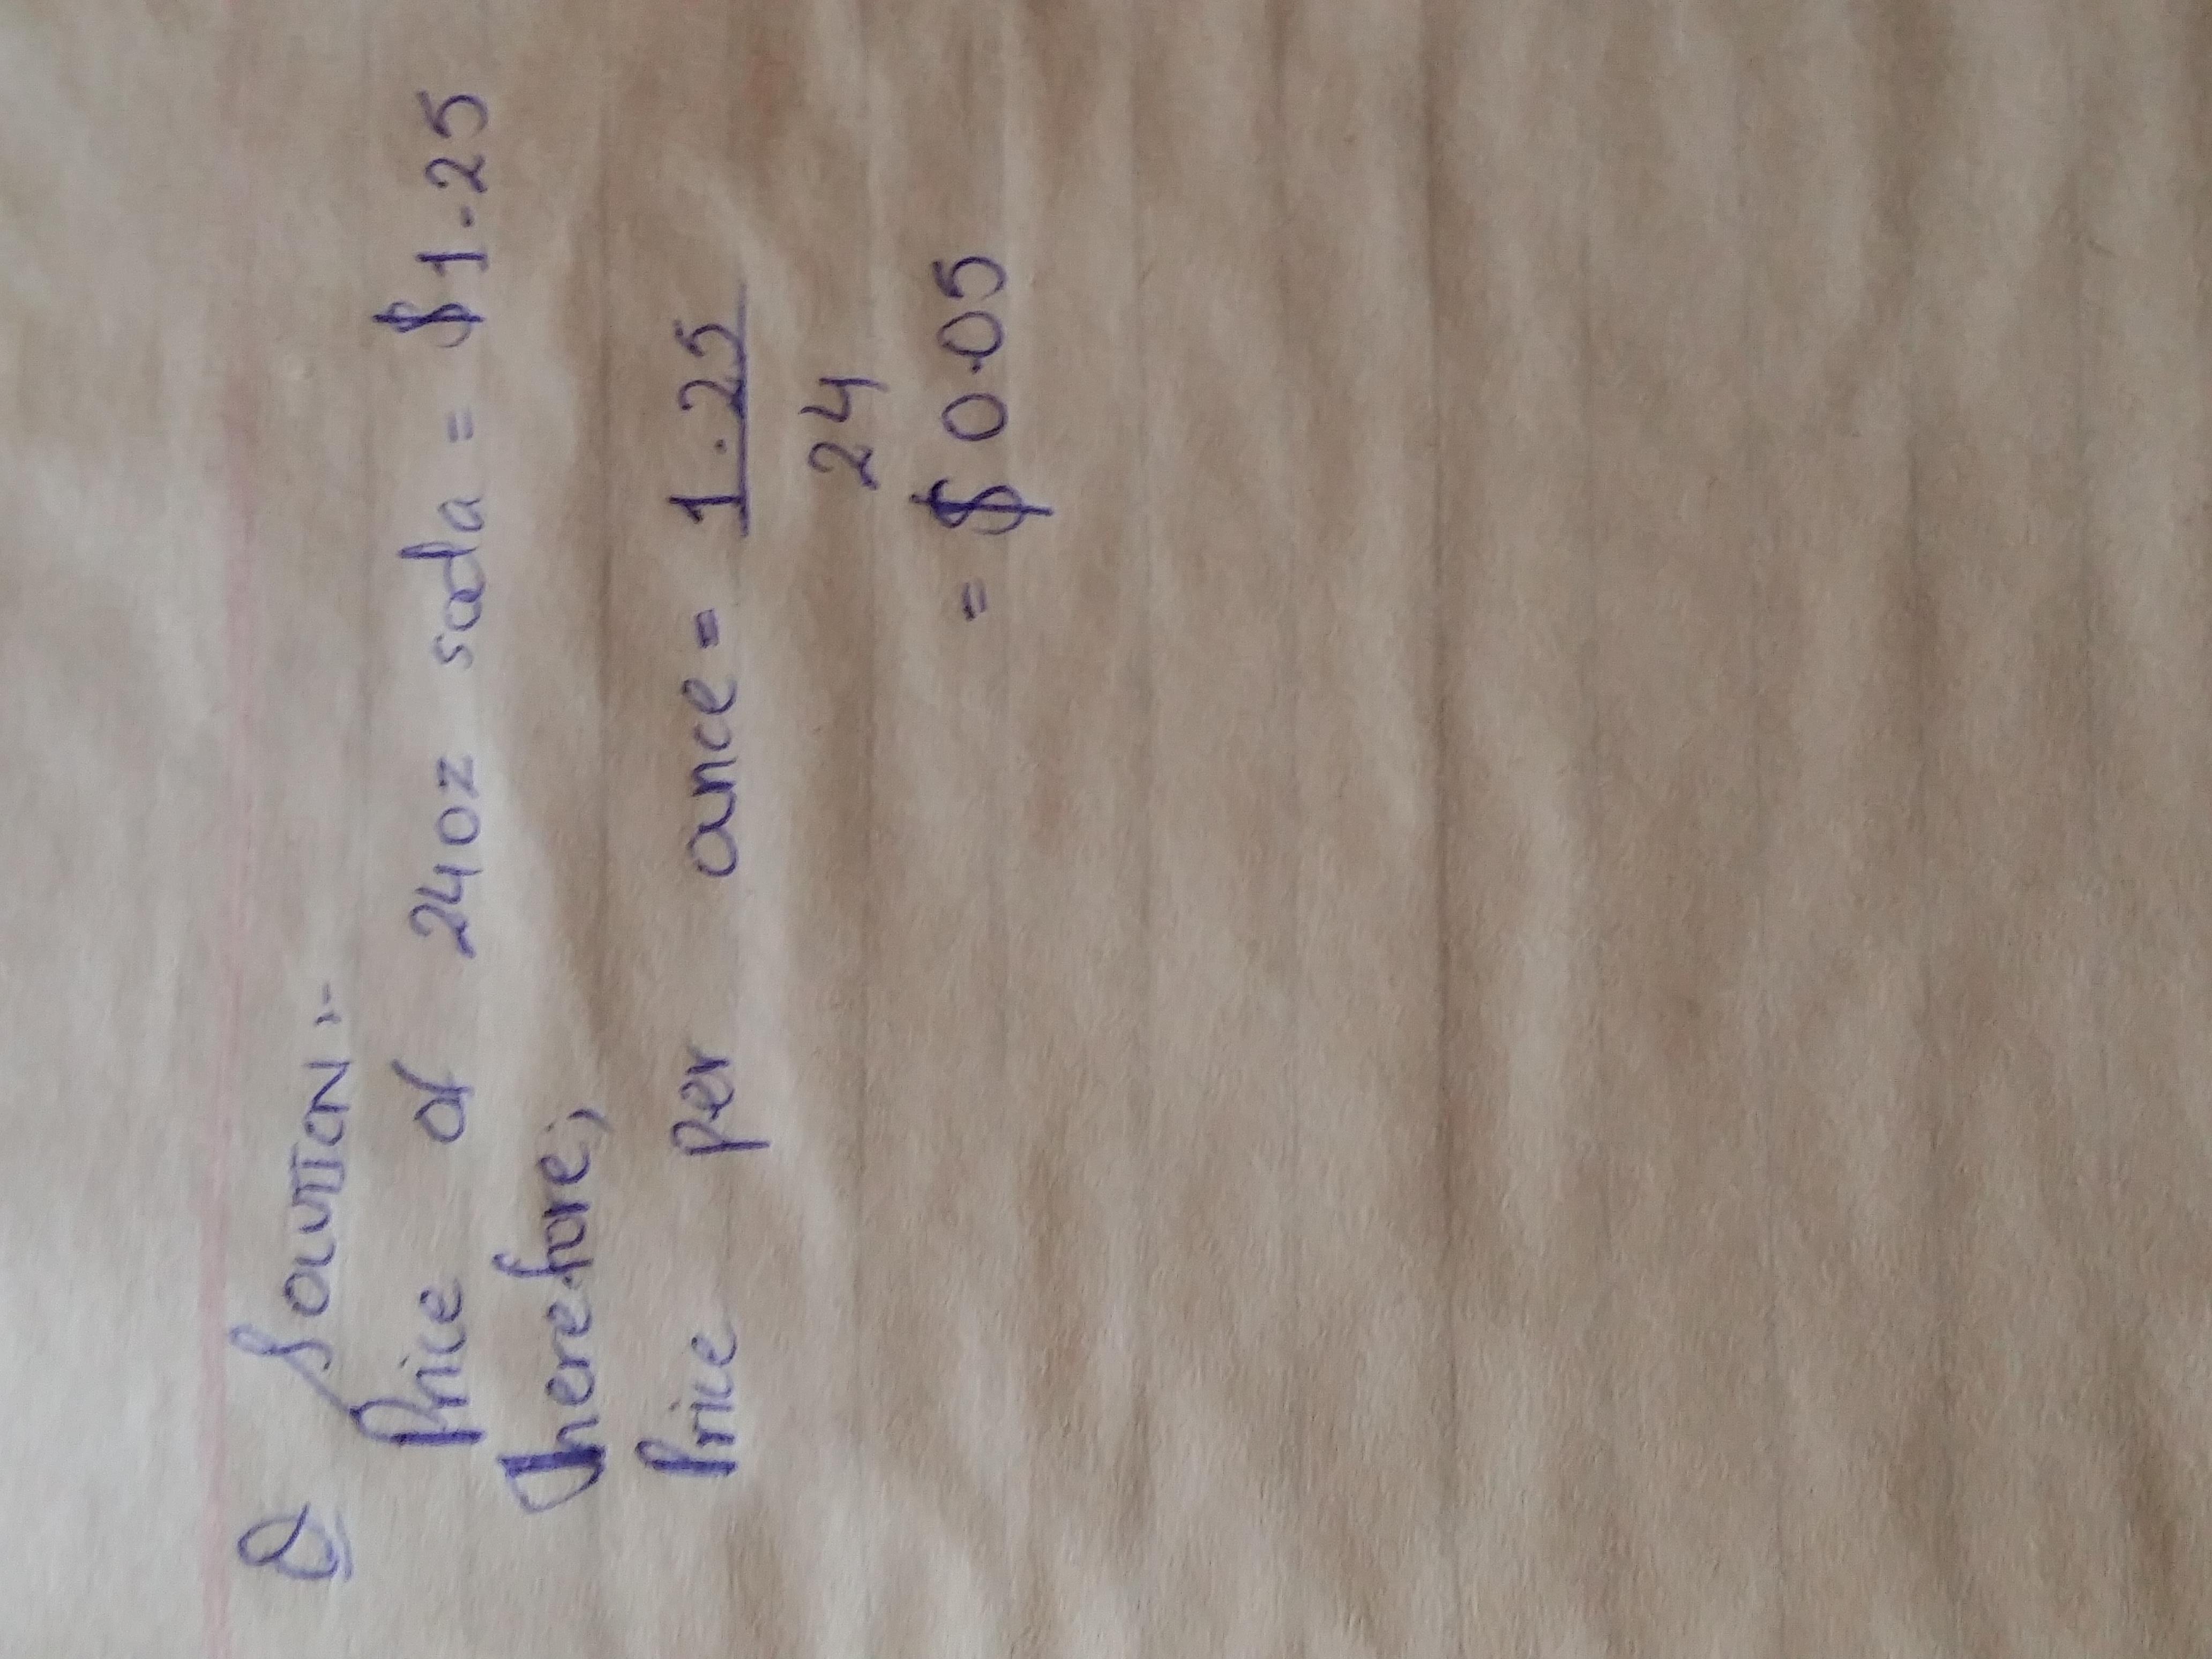 Q Solution:-
Price of 24oz soda = $1.25
Therefore;
Price per ounce = 1.25
24
= $0.05